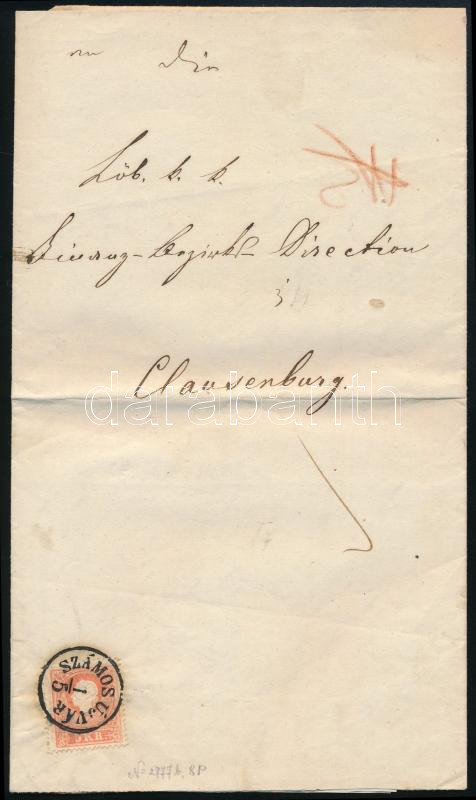 An die
Löb. k. k.
Finanz-Bezirks Direction
in
Clausenburg.
darabanth
SZÁMOS ÚJVÁR
1/5
5 KR.